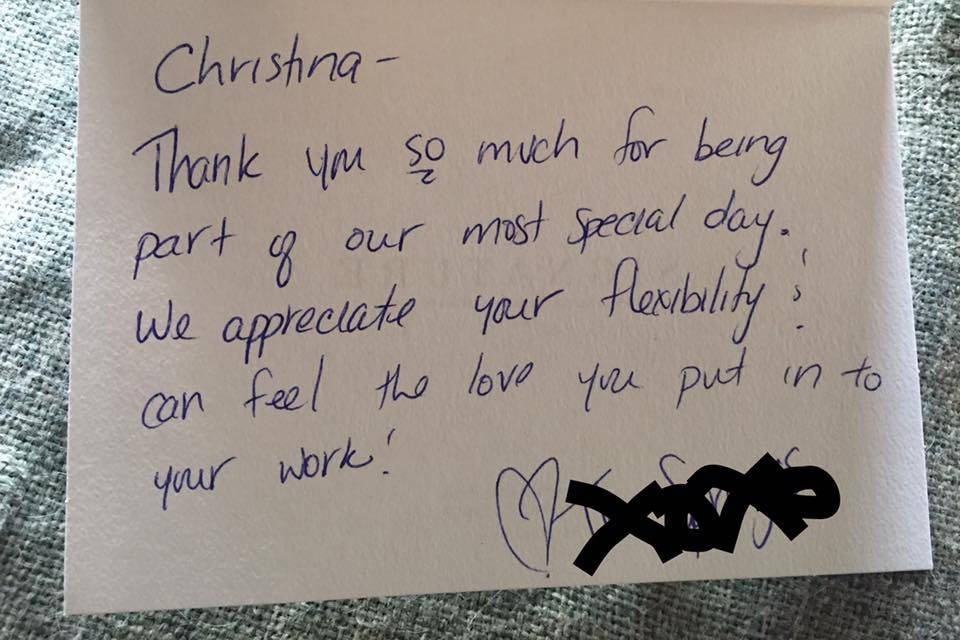 Christina -
Thank you so much for being
part of our most special day.
We appreciate your flexibility &
can feel the love you put in to
your work!